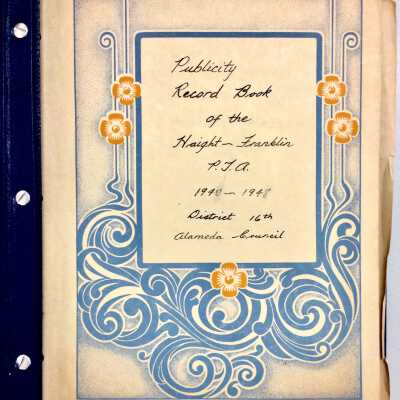 Publicity
Record Book
of the
Haight - Franklin
P.T.A.
1940 - 1948
District 16th
Alameda Council